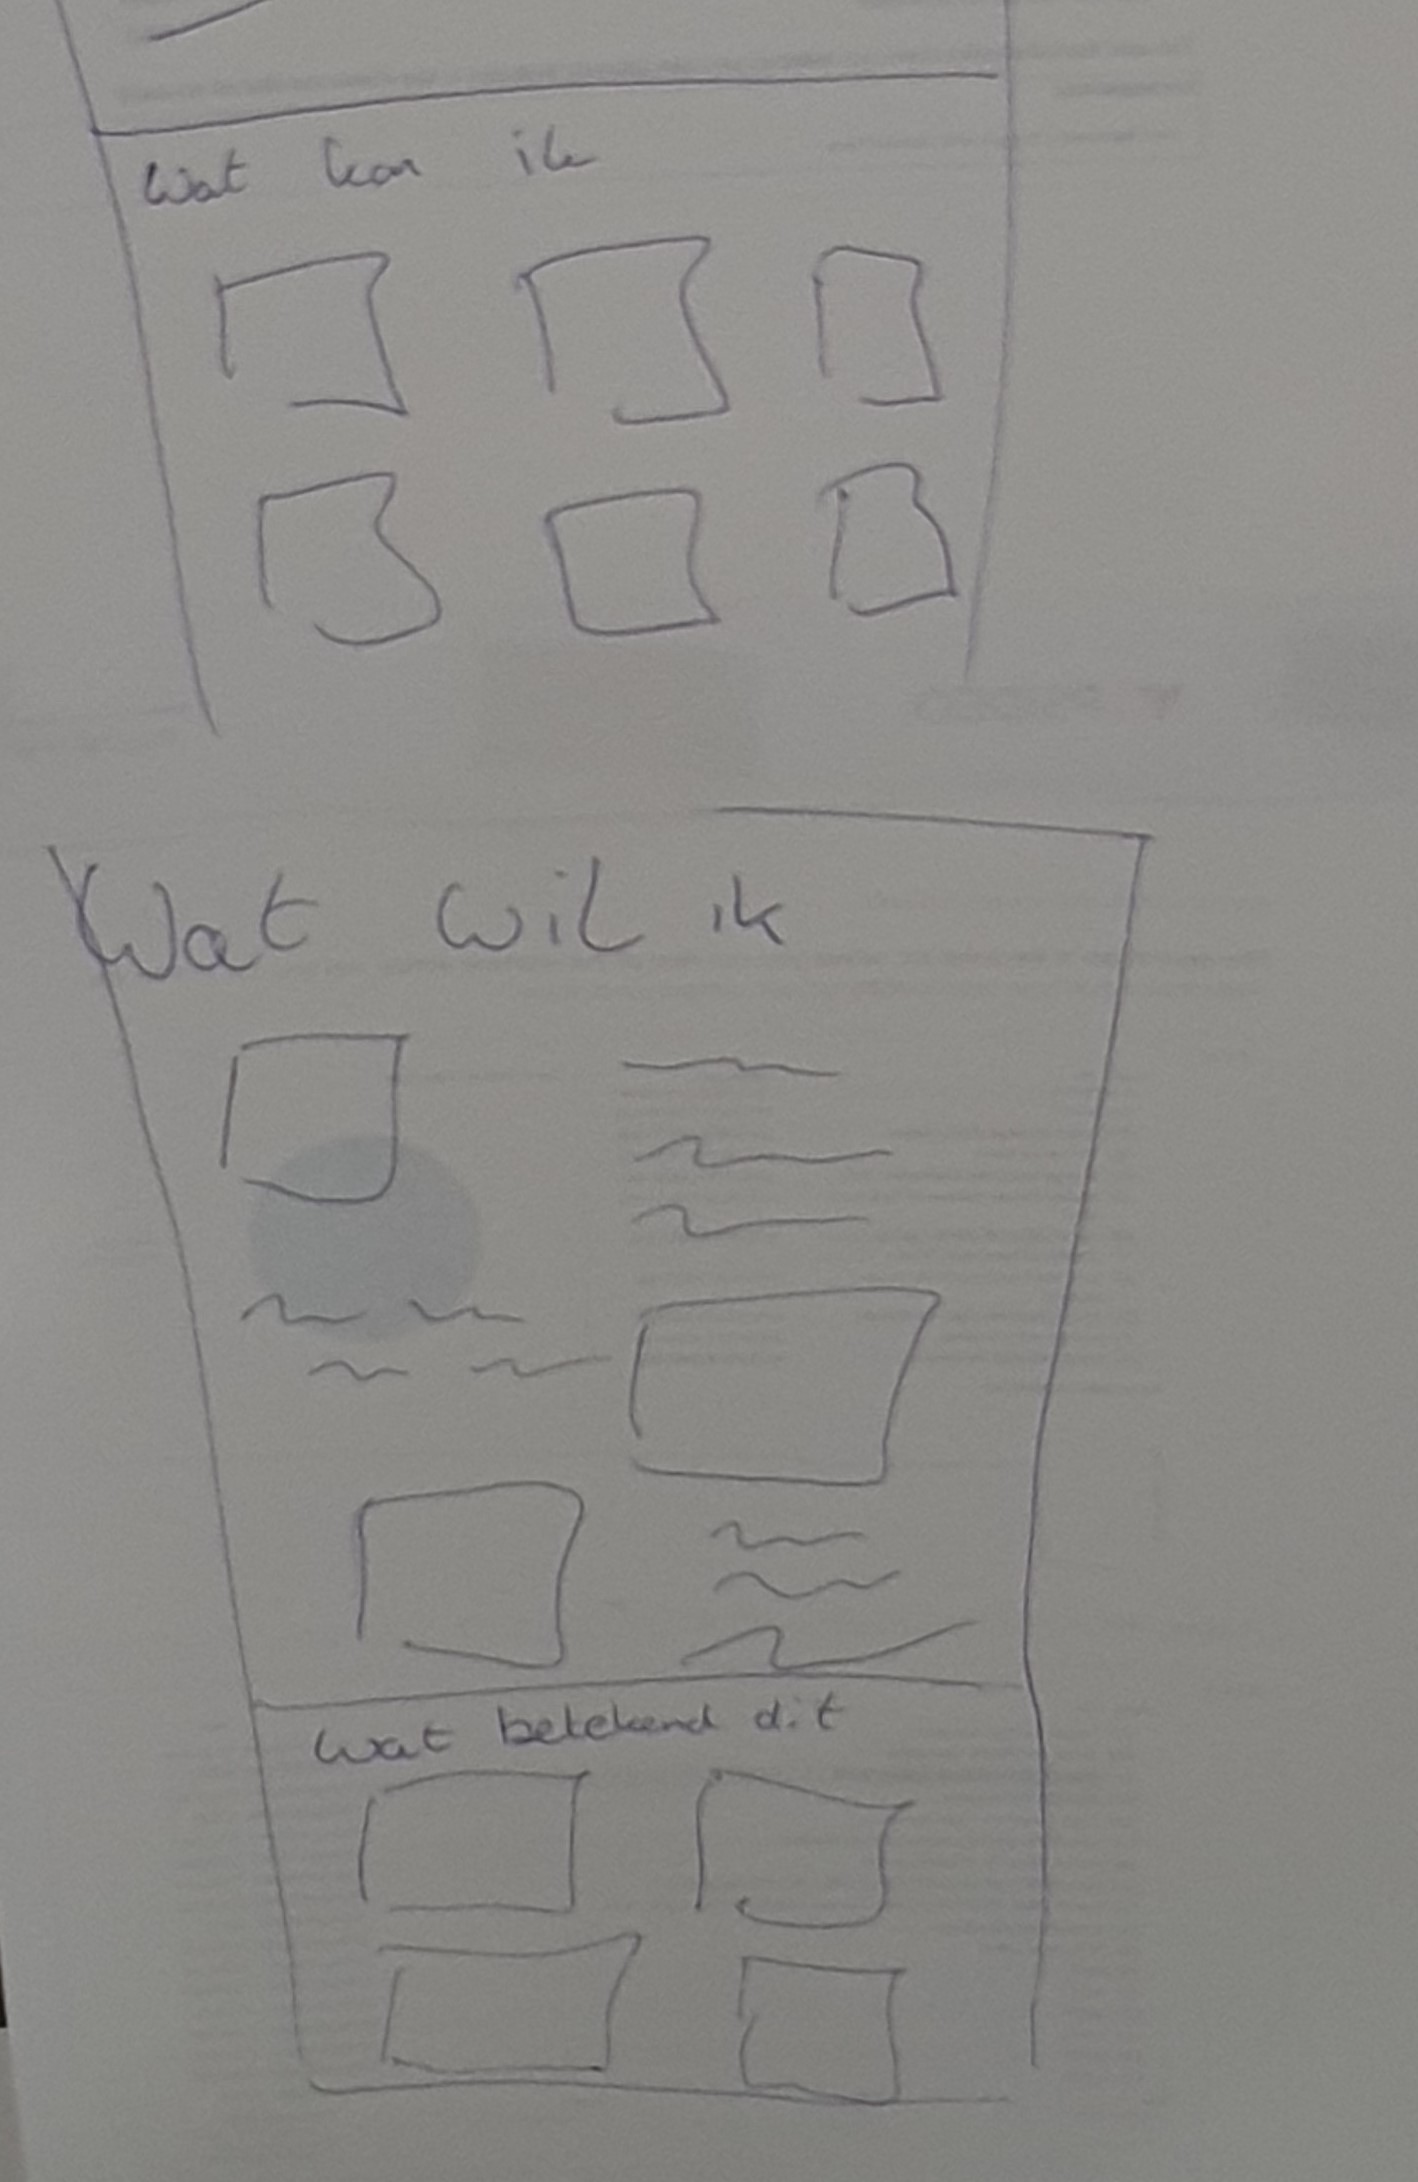 Wat kan ik
Wat wil ik
Wat betekend dit